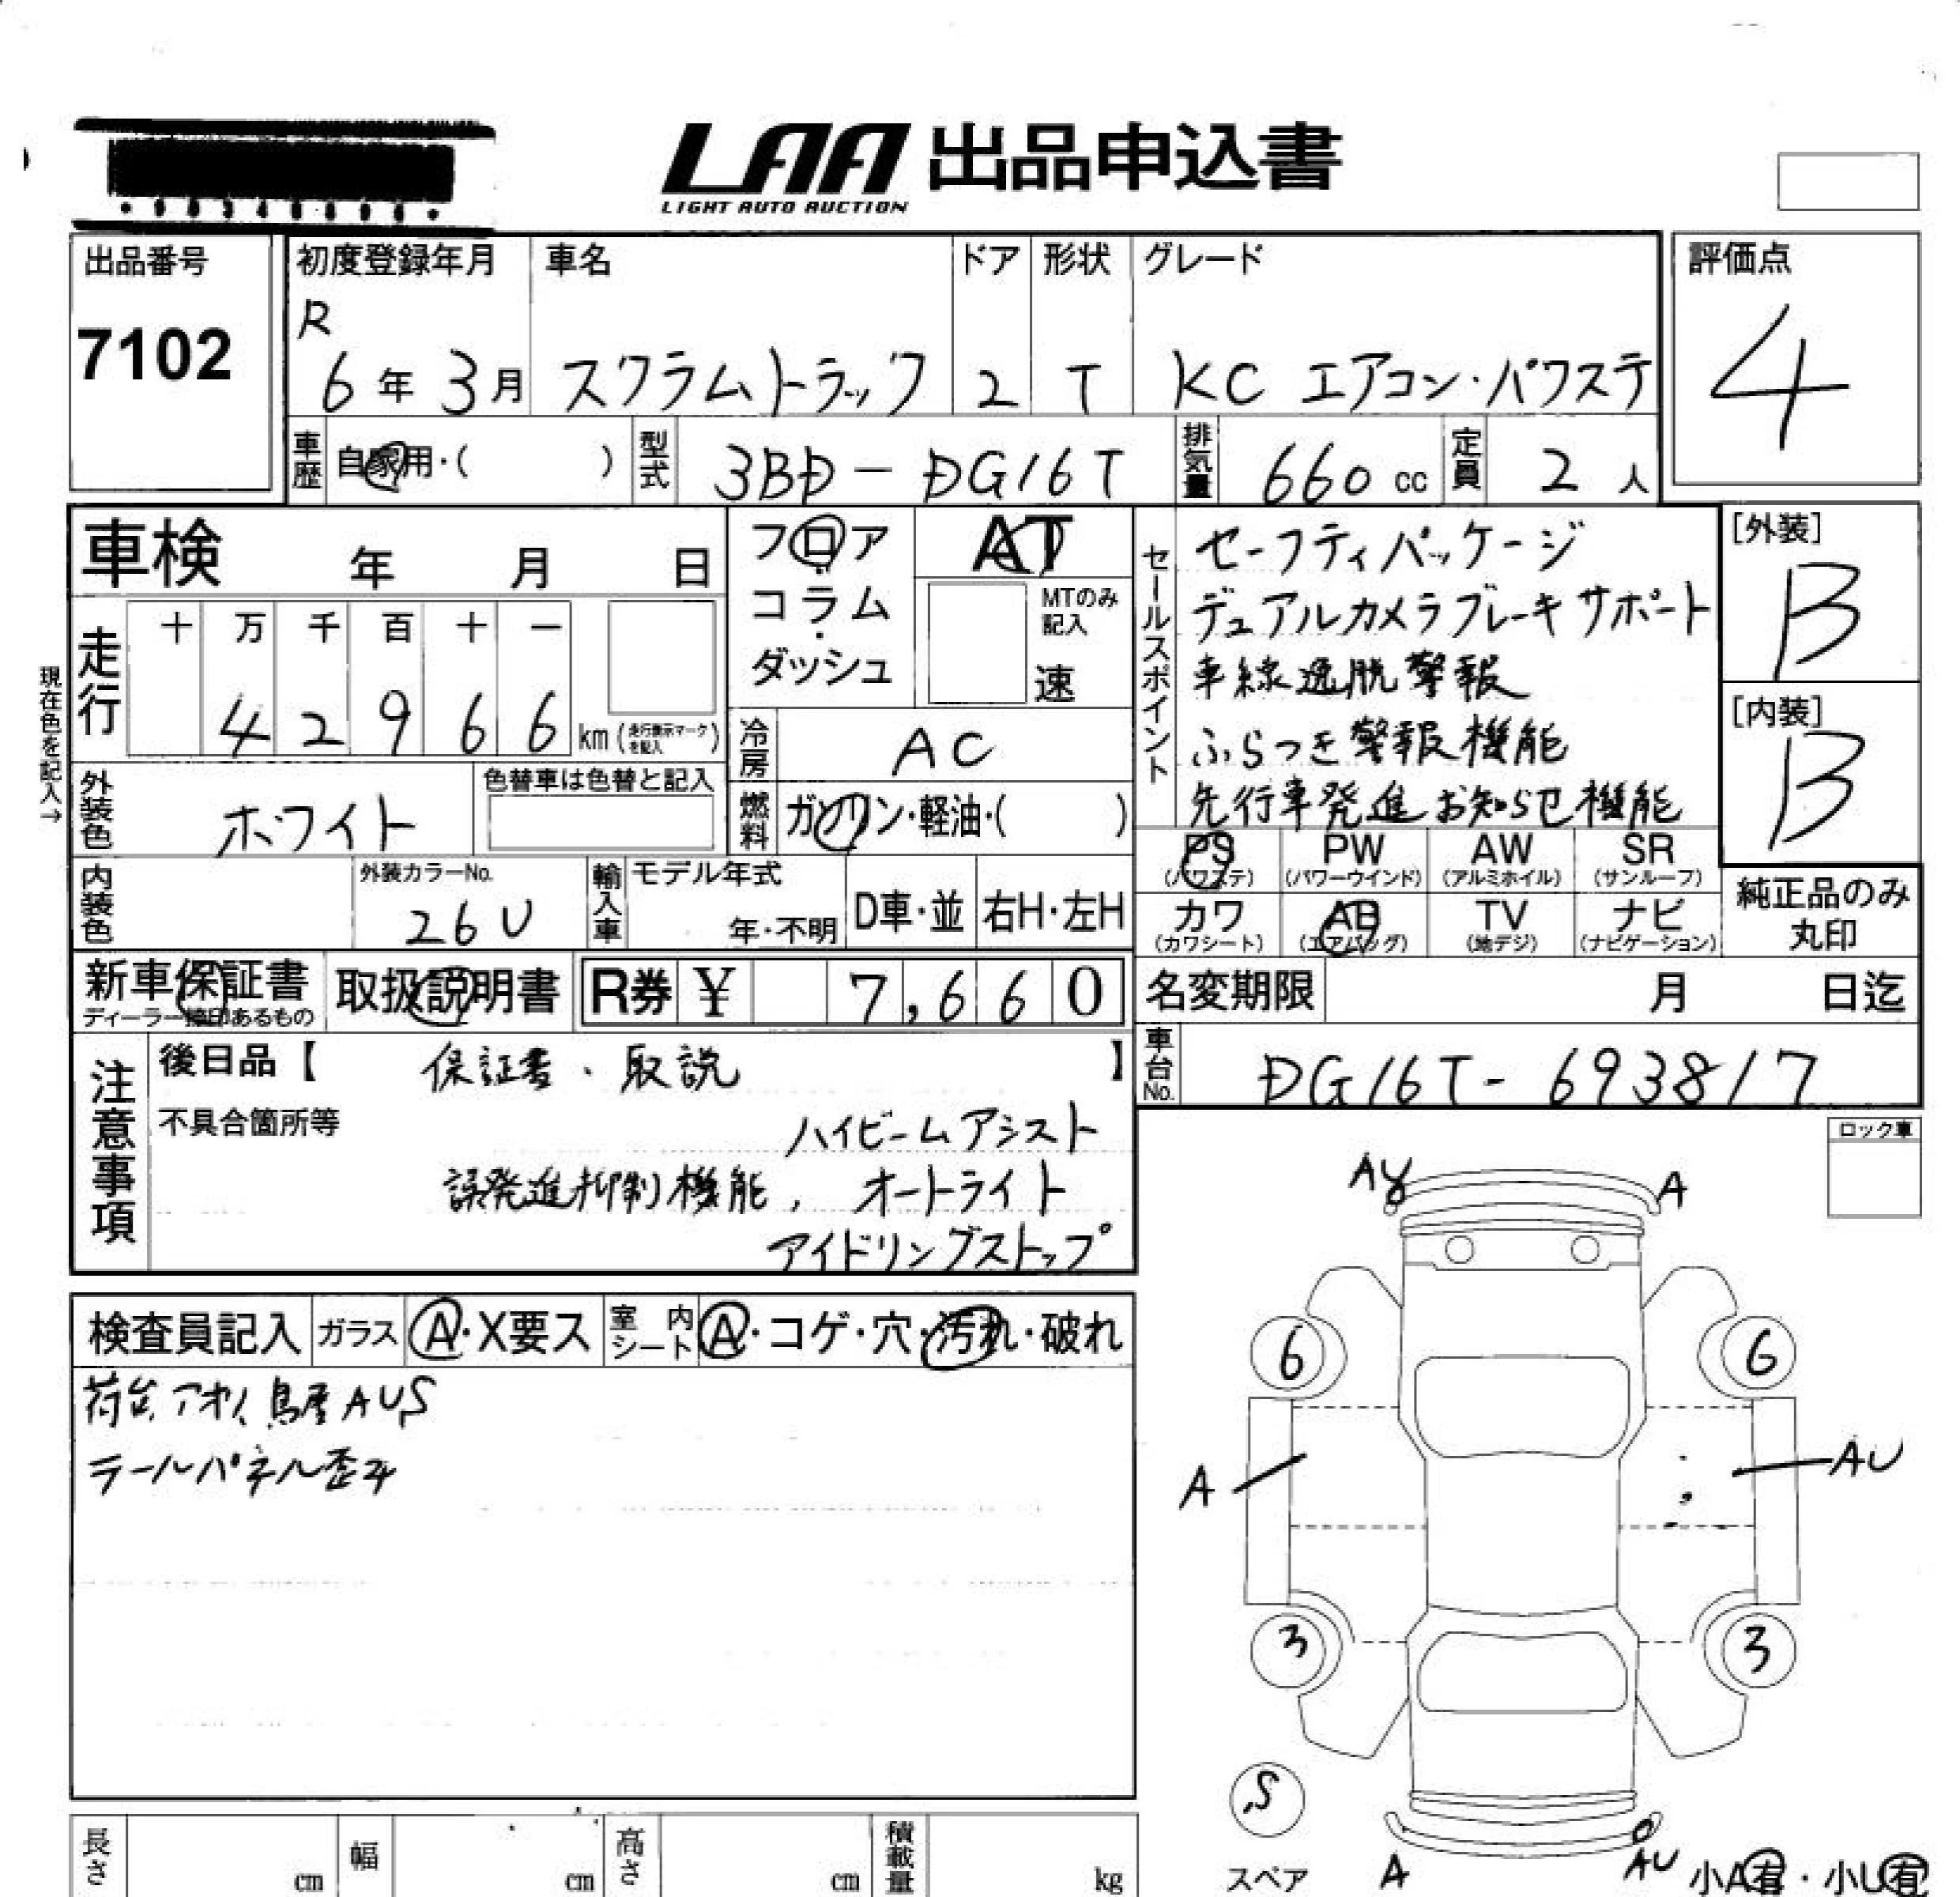 LAA 出品申込書
LIGHT AUTO AUCTION
出品番号
7102
初度登録年月
R
6年 3月
車名
スクラムトラック
ドア
2
形状
T
グレード
KC エアコン・パワステ
評価点
4
車歴
自家用・( )
型式
3BD-DG16T
排気量
660 cc
定員
2 人
車検 年 月 日
フロア
コラム
・
ダッシュ
AT
MTのみ
記入
速
現在色を記入→
走行
十 万 千 百 十 一
4 2 9 6 6 km (走行表示マークを記入)
冷房
AC
外装色
ホワイト
色替車は色替と記入
燃料
ガソリン・軽油・( )
内装色
外装カラーNo.
26U
輸入車
モデル年式
年・不明
D車・並
右H・左H
セールスポイント
セーフティパッケージ
デュアルカメラブレーキサポート
車線逸脱警報
ふらつき警報機能
先行車発進お知らせ機能
[外装]
B
[内装]
B
PS PW AW SR
(パワステ) (パワーウインド) (アルミホイル) (サンルーフ)
カワ AB TV ナビ
(カワシート) (エアバッグ) (地デジ) (ナビゲーション)
純正品のみ
丸印
新車保証書
ディーラー捺印あるもの
取扱説明書
R券 ¥ 7,660
名変期限 月 日迄
車台No.
DG16T-693817
注意事項
後日品【 保証書、取説 】
不具合箇所等
ハイビームアシスト
誤発進抑制機能, オートライト
アイドリングストップ
ロック車
検査員記入
ガラス
A・X要ス
室内
シート
A・コゲ・穴・汚れ・破れ
荷台アオリ鳥居AUS
テールパネル歪み
AY
A
6
6
A
AU
3
3
S
スペア
A
AU
小A有・小U有
長さ cm
幅 cm
高さ cm
積載量 kg